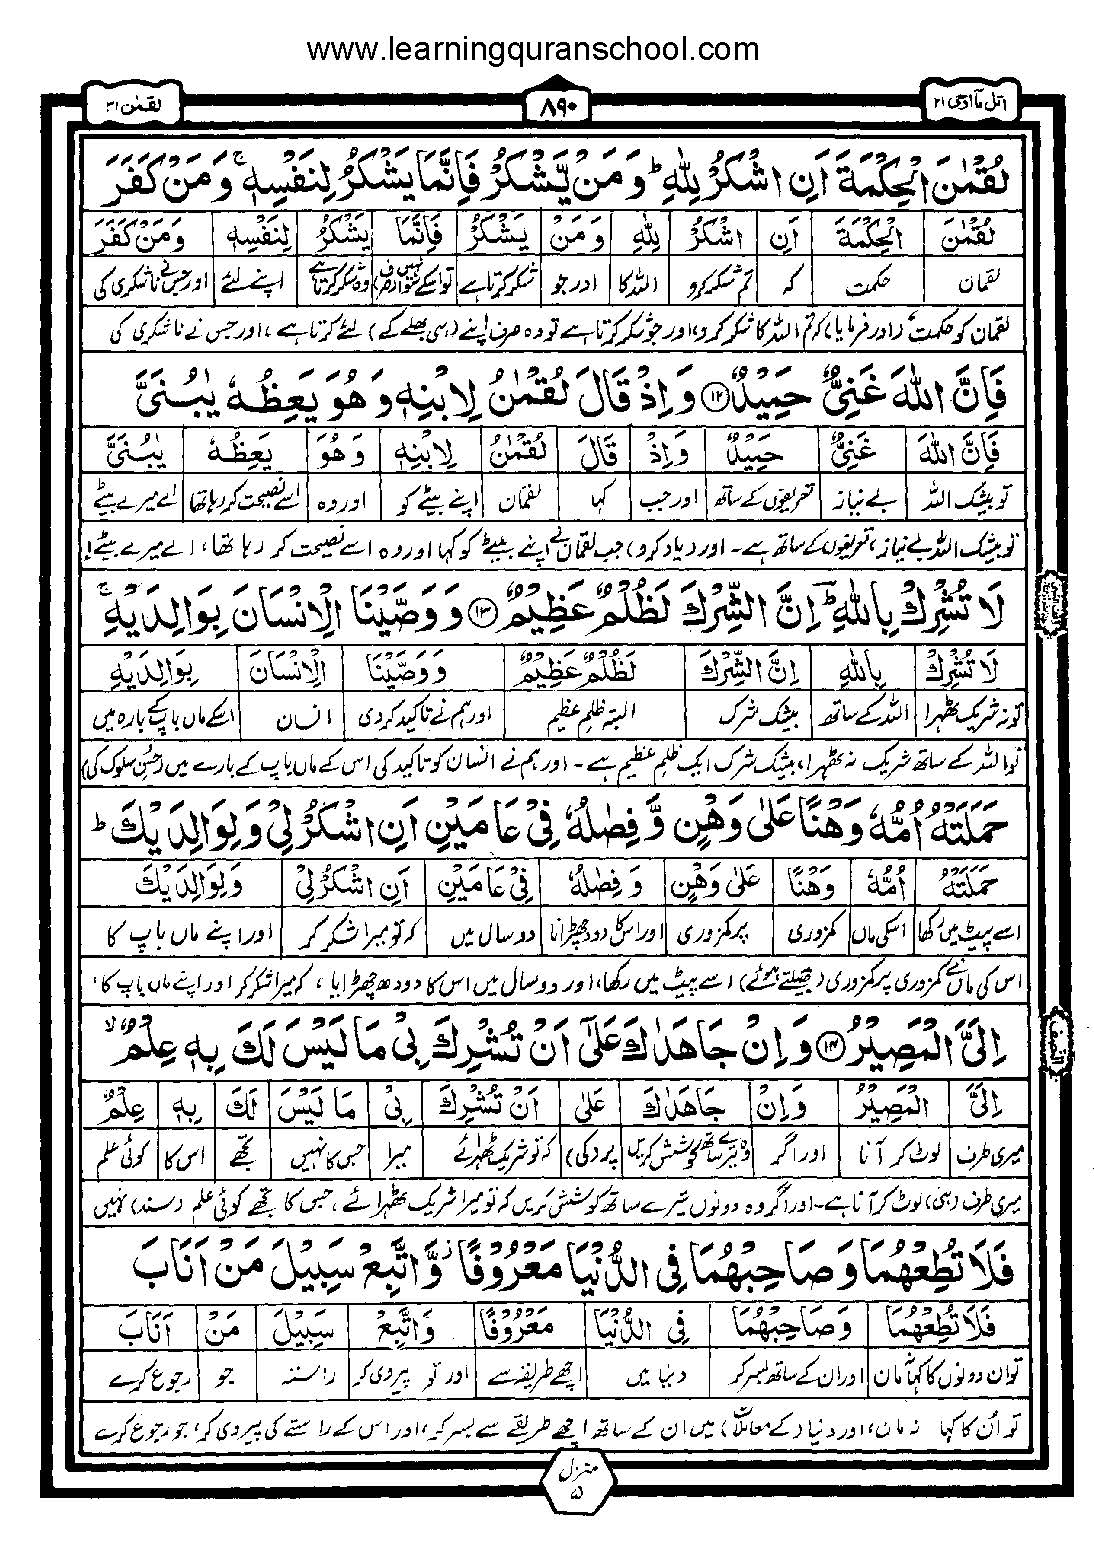 www.learningquranschool.com
اتل مآ اوحی ۲۱
۸۹۰
لقمٰن ۳۱
لُقْمٰنَ الْحِكْمَةَ اَنِ اشْكُرْ لِلّٰهِ ؕ وَمَنْ يَّشْكُرْ فَاِنَّمَا يَشْكُرُ لِنَفْسِهٖ ۚ وَمَنْ كَفَرَ
لُقْمٰنَ الْحِكْمَةَ اَنِ اشْكُرْ لِلّٰهِ وَمَنْ يَشْكُرْ فَاِنَّمَا يَشْكُرُ لِنَفْسِهٖ وَمَنْ كَفَرَ
لقمان حکمت کہ تم شکر کرو اللہ کا اور جو شکر کرتا ہے تو اسکے سوا نہیں (صرف) وہ شکر کرتا ہے اپنے لئے اور جس نے ناشکری کی
لقمان کو حکمت (اور فرمایا) کہ تم اللہ کا شکر کرو، اور جو شکر کرتا ہے تو وہ صرف اپنے (ہی بھلے کے) لئے کرتا ہے، اور جس نے ناشکری کی
فَاِنَّ اللّٰهَ غَنِیٌّ حَمِيْدٌ ۱۲ وَاِذْ قَالَ لُقْمٰنُ لِابْنِهٖ وَهُوَ يَعِظُهٗ يٰبُنَیَّ
فَاِنَّ اللّٰهَ غَنِیٌّ حَمِيْدٌ وَاِذْ قَالَ لُقْمٰنُ لِابْنِهٖ وَهُوَ يَعِظُهٗ يٰبُنَیَّ
تو بیشک اللہ بے نیاز تعریفوں کے ساتھ اور جب کہا لقمان اپنے بیٹے کو اور وہ اسے نصیحت کر رہا تھا اے میرے بیٹے
تو بیشک اللہ بے نیاز، تعریفوں کے ساتھ ہے۔ اور (یاد کرو) جب لقمان نے اپنے بیٹے کو کہا اور وہ اسے نصیحت کر رہا تھا، اے میرے بیٹے!
لَا تُشْرِكْ بِاللّٰهِ ؕ اِنَّ الشِّرْكَ لَظُلْمٌ عَظِيْمٌ ۱۳ وَوَصَّيْنَا الْاِنْسَانَ بِوَالِدَيْهِ ۚ
لَا تُشْرِكْ بِاللّٰهِ اِنَّ الشِّرْكَ لَظُلْمٌ عَظِيْمٌ وَوَصَّيْنَا الْاِنْسَانَ بِوَالِدَيْهِ
تو نہ شریک ٹھہرا اللہ کے ساتھ بیشک شرک البتہ ظلم عظیم اور ہم نے تاکید کردی انسان اسکے ماں باپ کے بارہ میں
تو اللہ کے ساتھ شریک نہ ٹھہرا، بیشک شرک ایک ظلم عظیم ہے۔ اور ہم نے انسان کو تاکید کی اس کے ماں باپ کے بارے میں (حسن سلوک کی)
حَمَلَتْهُ اُمُّهٗ وَهْنًا عَلٰی وَهْنٍ وَّفِصٰلُهٗ فِیْ عَامَيْنِ اَنِ اشْكُرْ لِیْ وَلِوَالِدَيْكَ ؕ
حَمَلَتْهُ اُمُّهٗ وَهْنًا عَلٰی وَهْنٍ وَفِصٰلُهٗ فِیْ عَامَيْنِ اَنِ اشْكُرْ لِیْ وَلِوَالِدَيْكَ
اسے پیٹ میں رکھا اسکی ماں کمزوری پر کمزوری اور اسکا دودھ چھڑانا دو سال میں کہ تو میرا شکر کر اور اپنے ماں باپ کا
اس کی ماں نے کمزوری پر کمزوری (جھیلتے ہوئے) اسے پیٹ میں رکھا، اور دو سال میں اس کا دودھ چھڑایا، کہ میرا شکر کر اور اپنے ماں باپ کا،
اِلَیَّ الْمَصِيْرُ ۱۴ وَاِنْ جَاهَدٰكَ عَلٰٓی اَنْ تُشْرِكَ بِیْ مَا لَيْسَ لَكَ بِهٖ عِلْمٌ ۙ
اِلَیَّ الْمَصِيْرُ وَاِنْ جَاهَدٰكَ عَلٰی اَنْ تُشْرِكَ بِیْ مَا لَيْسَ لَكَ بِهٖ عِلْمٌ
میری طرف لوٹ کر آنا اور اگر وہ تیرے ساتھ کوشش کریں پر (کی) کہ تو شریک ٹھہرائے میرا جس کا نہیں تجھے اس کا کوئی علم
میری طرف (ہی) لوٹ کر آنا ہے۔ اور اگر وہ دونوں تیرے ساتھ کوشش کریں کہ تو میرا شریک ٹھہرائے، جس کا تجھے کوئی علم (سند) نہیں
فَلَا تُطِعْهُمَا وَصَاحِبْهُمَا فِی الدُّنْيَا مَعْرُوْفًا ز وَّاتَّبِعْ سَبِيْلَ مَنْ اَنَابَ
فَلَا تُطِعْهُمَا وَصَاحِبْهُمَا فِی الدُّنْيَا مَعْرُوْفًا وَاتَّبِعْ سَبِيْلَ مَنْ اَنَابَ
تو ان دونوں کا کہا نہ مان اور ان کے ساتھ بسر کر دنیا میں اچھے طریقے سے اور تو پیروی کر راستہ جو رجوع کرے
تو اُن کا کہا نہ مان، اور دنیا (کے معاملات) میں ان کے ساتھ اچھے طریقے سے بسر کر، اور اس کے راستے کی پیروی کر، جو رجوع کرے
منزل ۵